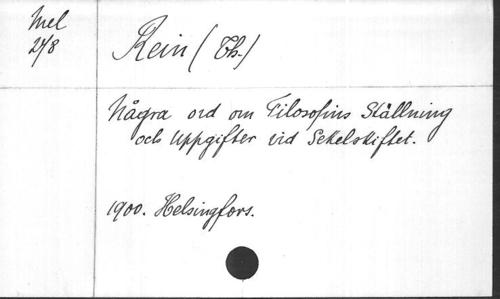 Mel
248
Rein (Th.)
Några ord om Filosofins Ställning
och Uppgifter vid Sekelskiftet.
1900. Helsingfors.